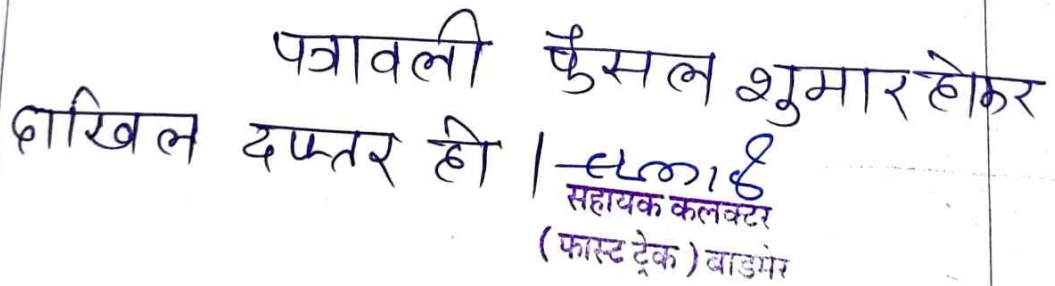 पत्रावली फैसल शुमार होकर
दाखिल दफ्तर हो।
सहायक कलक्टर
(फास्ट ट्रेक) बाडमेर